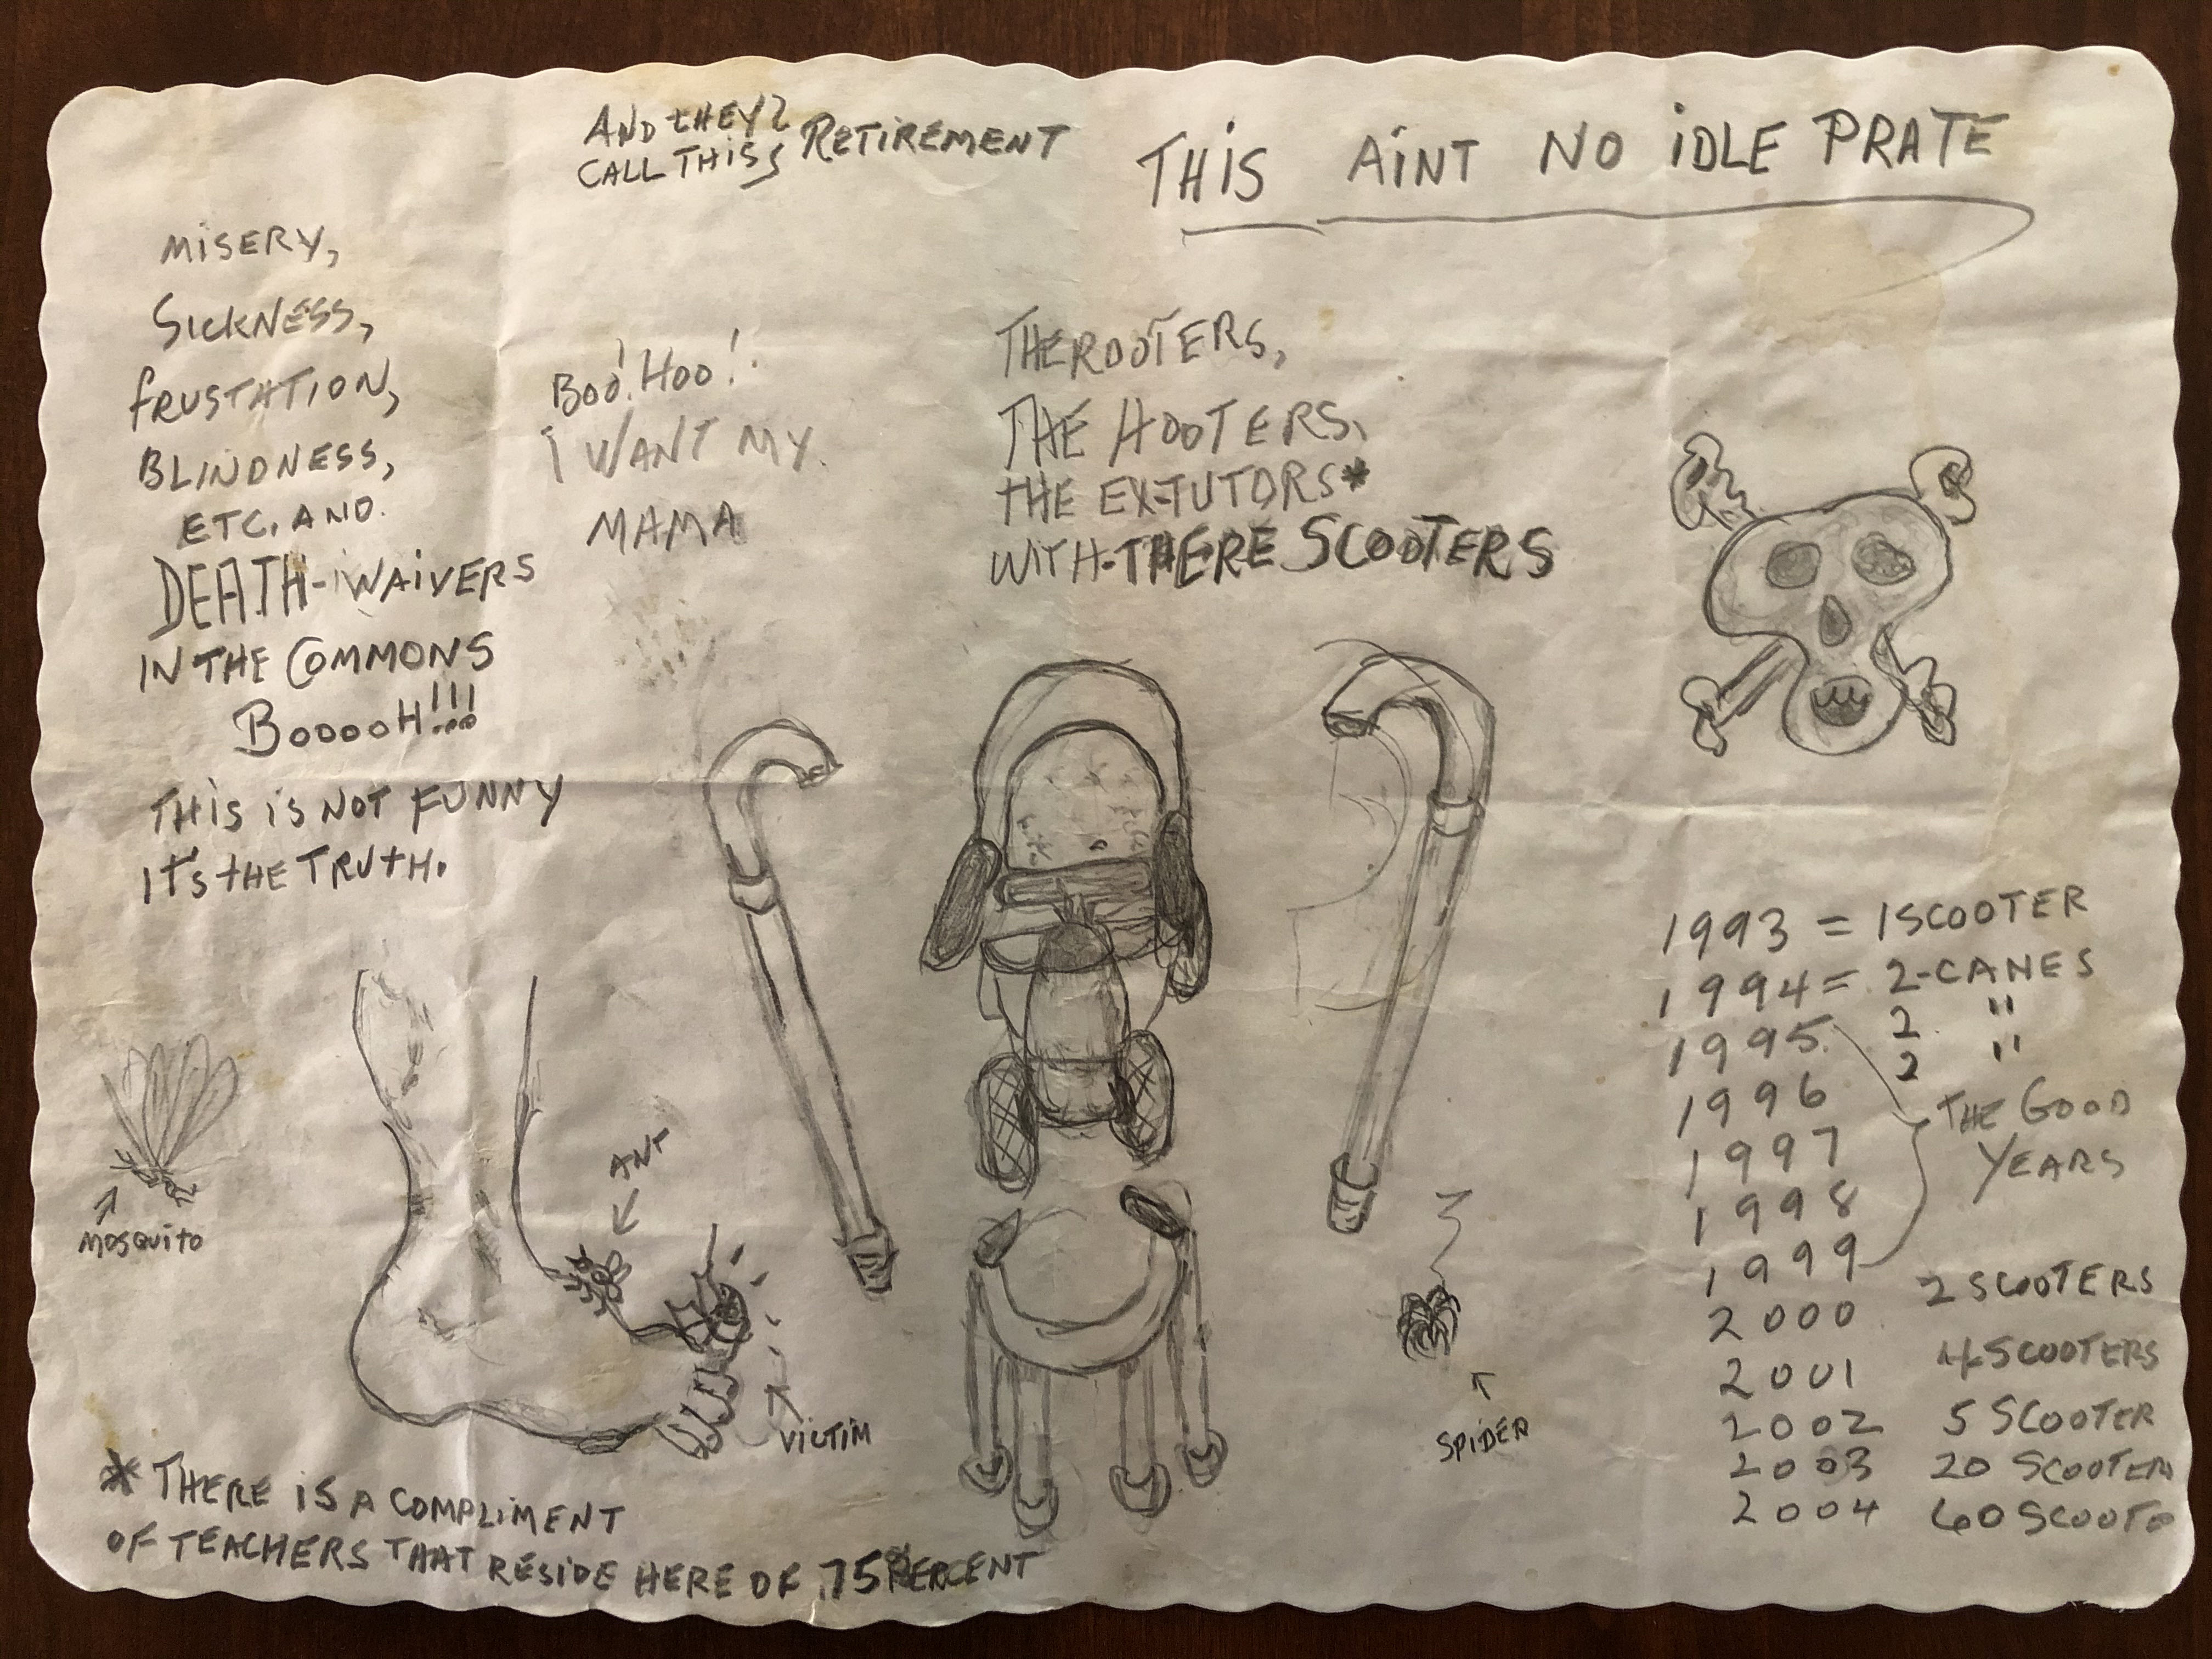 AND THEY
CALL THIS
RETIREMENT
THIS AINT NO IDLE PRATE
MISERY,
SICKNESS,
FRUSTATION,
BLINDNESS,
ETC. AND.
DEATH-WAIVERS
IN THE COMMONS
BOOOOH!!!
THIS IS NOT FUNNY
IT'S THE TRUTH.
BOO! HOO!
I WANT MY
MAMA
THE ROOTERS,
THE HOOTERS,
THE EX-TUTORS*
WITH-THERE SCOOTERS
1993 = 1 SCOOTER
1994 = 2-CANES
1995 2 "
2 "
1996
THE GOOD
YEARS
1997
1998
1999
2000 2 SCOOTERS
2001 4 SCOOTERS
2002 5 SCOOTER
2003 20 SCOOTERS
2004 60 SCOOTE
MOSQUITO
ANT
VICTIM
SPIDER
* THERE IS A COMPLIMENT
OF TEACHERS THAT RESIDE HERE OF .75 PERCENT